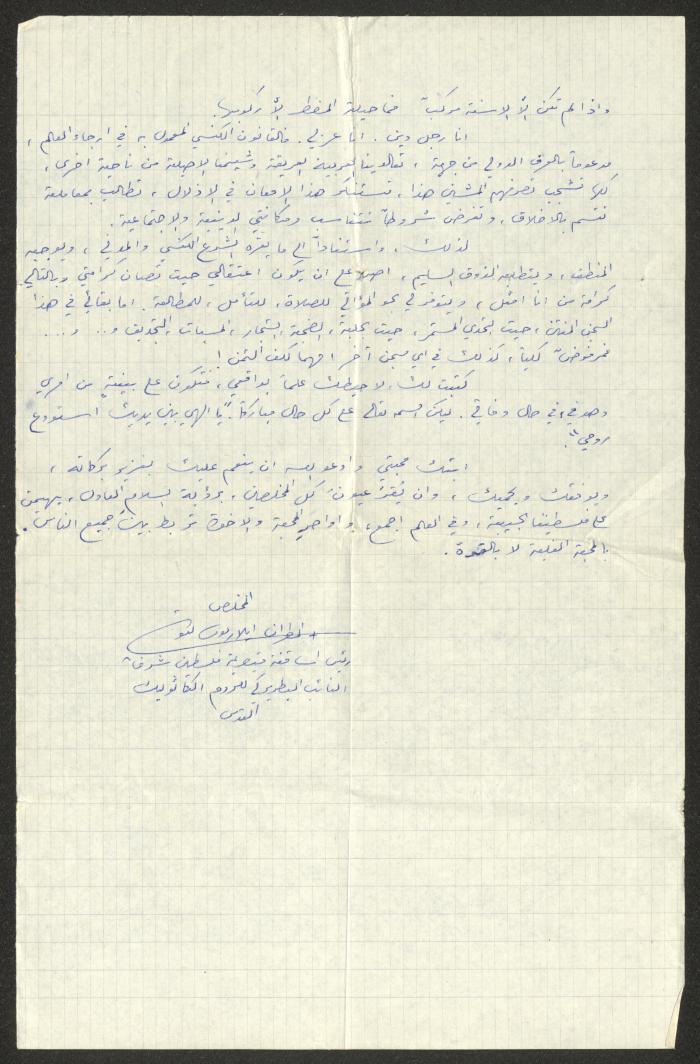 واذا لم تكن الا الاسنة مركباً فما حيلة المضطر الا ركوبها.
انا رجل دين. انا عربي. فالقانون الكنسي المعمول به في ارجاء العالم،
مدعوماً بالعرف الدولي من جهة، تقاليدنا العربية العريقة وشيمنا الاصيلة من ناحية اخرى،
كلها تشجب تصرفهم المشين هذا، تستنكر هذا الامعان في الاذلال، تطالب بمعاملة
تتسم بالاخلاق، وتفرض شروطاً تتناسب ومكانتي الدينية والاجتماعية.
لذلك، واستناداً الى ما يقره الشرع الكنسي والدولي، ويوجبه
المنطق، ويتطلبه الذوق السليم، اصر على ان يكون اعتقالي حيث تصان كرامتي وبالتالي
كرامة من انا امثل، ويتوفر لي جو مؤاتي للصلاة، للتأمل، للمطالعة. اما بقائي في هذا
السجن، حيث التحدي المستمر، حيث الضجة، الشجار، المسبات، التجديف و.. و....
فمرفوض كلياً، كذلك في اي سجن آخر. فمهما كلف الثمن!
كتبت لك، لاحيطك علماً بواقعي، فتكون على بينة من امري
وهو في حال وفاتي. ليكن اسمه تعالى على كل حال مباركاً. "يا الهي بين يديك استودع
روحي".
ابثك محبتي وادعو لله ان ينعم عليك بغزير بركاته،
ويوفقك ويحميك، وان يُقرّ عيون كل المخلصين، برؤية السلام العادل، يهيمن
على فلسطيننا الحبيبة، وفي العالم اجمع، واواصر المحبة والاخوة تربط بين جميع الناس.
بالمحبة الغلبة لا بالقوة.
المخلص
+ المطران ايلاريون كبوجي
رئيس اساقفة قيصرية فلسطين شرفاً
النائب البطريركي للروم الكاثوليك
القدس